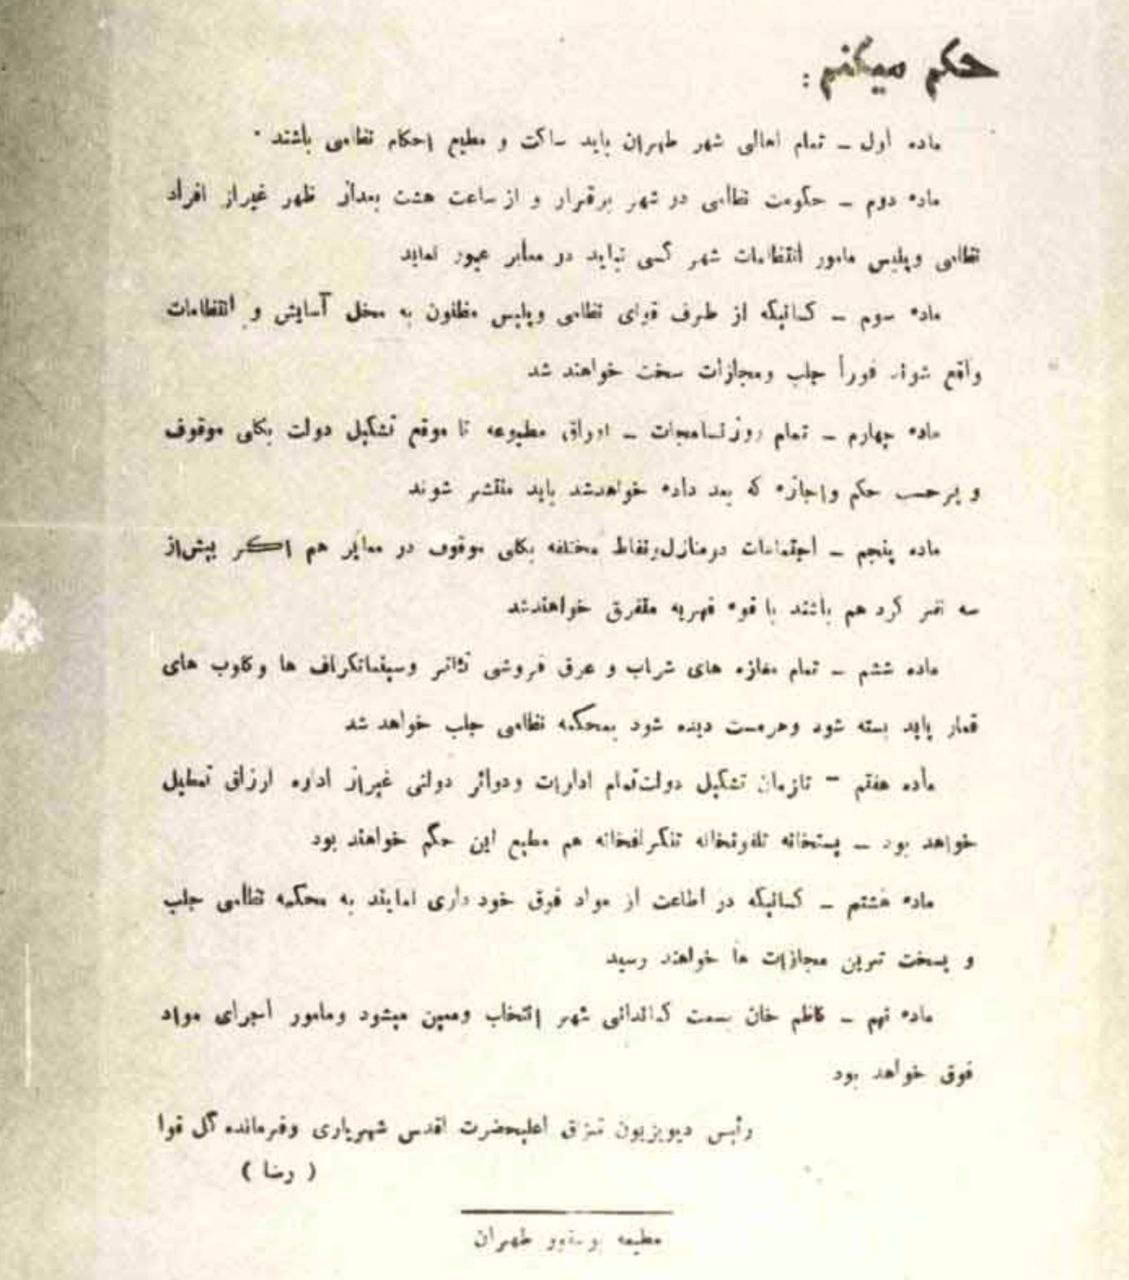 حکم میکنم :
ماده اول ــ تمام اهالی شهر طهران باید ساکت و مطیع احکام نظامی باشند ·
ماده دوم ــ حکومت نظامی در شهر برقرار و از ساعت هشت بعداز ظهر غیراز افراد
نظامی و پلیس مامور انتظامات شهر کسی نباید در معابر عبور نماید
ماده سوم ــ کسانیکه از طرف قوای نظامی و پلیس مظنون به مخل آسایش و انتظامات
واقع شوند فوراً جلب و مجازات سخت خواهند شد
ماده چهارم ــ تمام روزنامجات ــ اوراق مطبوعه تا موقع تشکیل دولت بکلی موقوف
و برحسب حکم و اجازه که بعد داده خواهدشد باید منتشر شوند
ماده پنجم ــ اجتماعات درمنازل و نقاط مختلفه بکلی موقوف در معابر هم اگر بیش از
سه نفر گرد هم باشند با قوه قهریه متفرق خواهندشد
ماده ششم ــ تمام مغازه های شراب و عرق فروشی تئاتر و سینماتگراف ها و کلوب های
قمار باید بسته شود و هر مست دیده شود بمحکمه نظامی جلب خواهد شد
ماده هفتم – تا زمان تشکیل دولت تمام ادارات و دوائر دولتی غیراز اداره ارزاق تعطیل
خواهد بود ــ پستخانه تلفونخانه تلگرافخانه هم مطیع این حکم خواهند بود
ماده هشتم ــ کسانیکه در اطاعت از مواد فوق خود داری نمایند به محکمه نظامی جلب
و بسخت ترین مجازات ها خواهند رسید
ماده نهم ــ کاظم خان بسمت کماندانی شهر انتخاب و معین میشود و مامور اجرای مواد
فوق خواهد بود
رئیس دیویزیون قزاق اعلیحضرت اقدس شهریاری و فرمانده کل قوا
( رضا )
مطبعه طهران